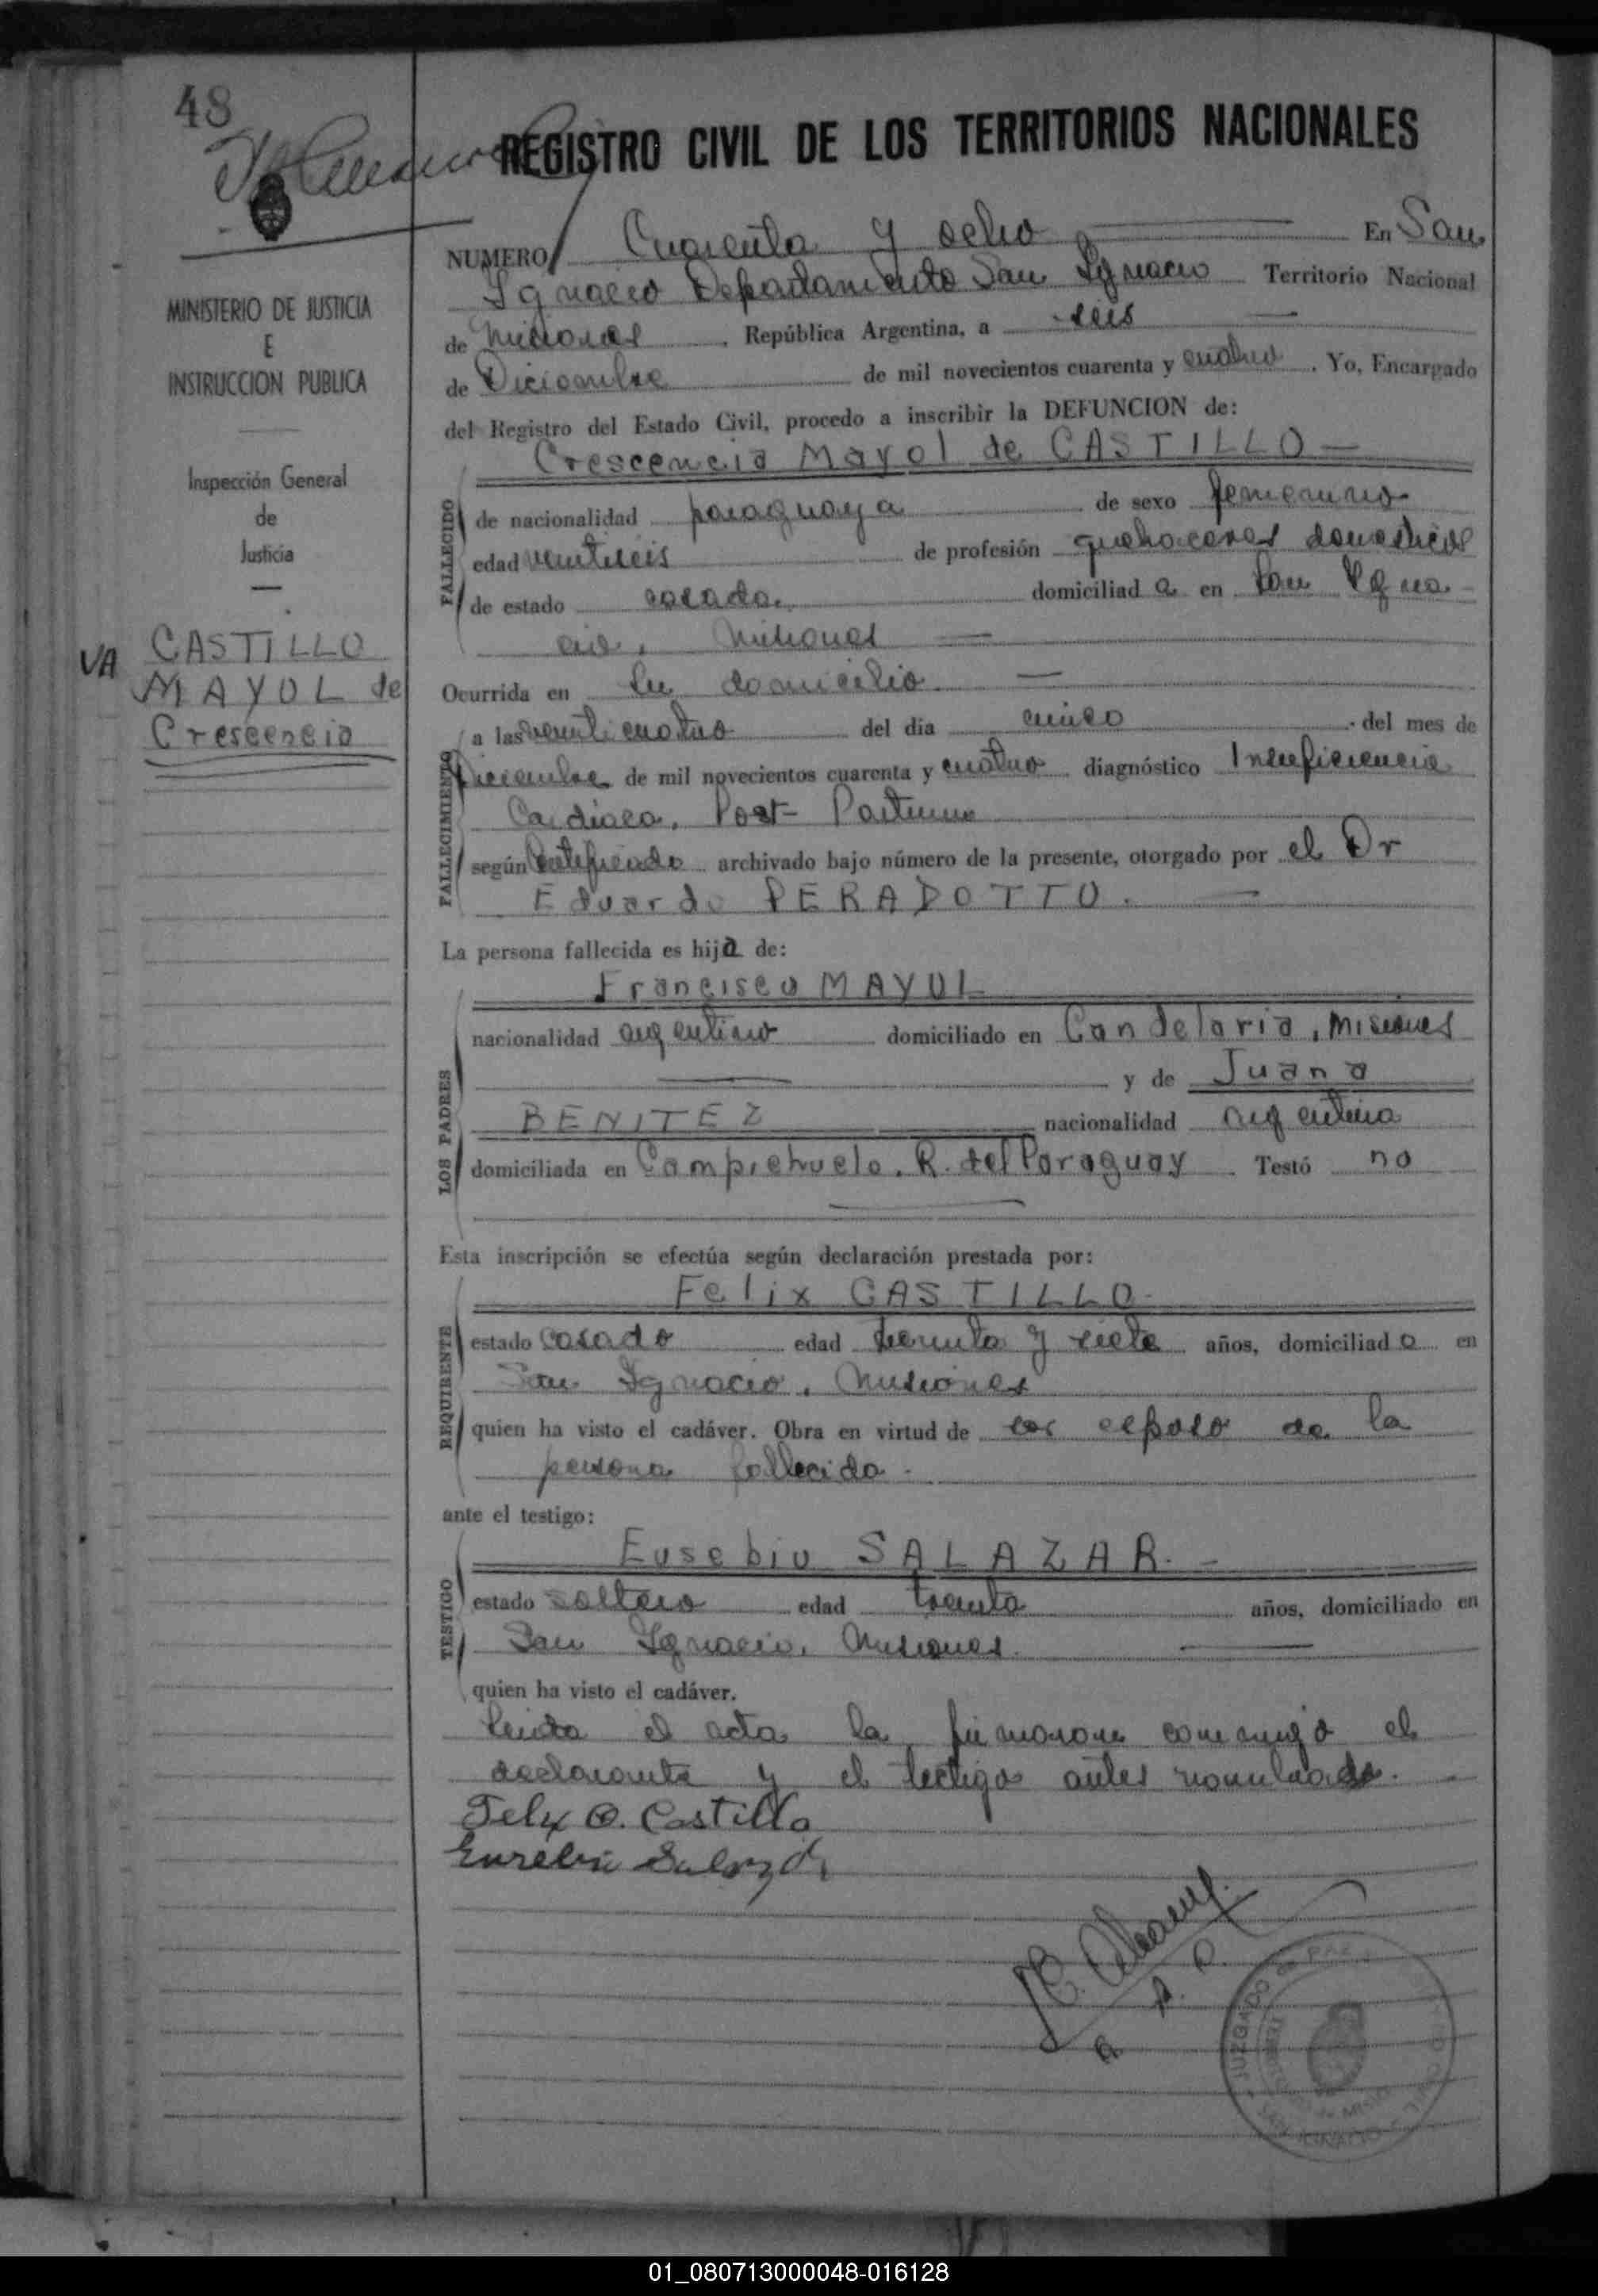 48
REGISTRO CIVIL DE LOS TERRITORIOS NACIONALES
MINISTERIO DE JUSTICIA
E
INSTRUCCION PUBLICA
Inspección General
de
Justicia
VA CASTILLO
MAYOL de
Crescencia
NUMERO Cuarenta y ocho En San
Ignacio Departamento San Ignacio Territorio Nacional
de Misiones, República Argentina, a seis
de Diciembre de mil novecientos cuarenta y cuatro. Yo, Encargado
del Registro del Estado Civil, procedo a inscribir la DEFUNCION de:
Crescencia Mayol de CASTILLO
FALLECIDO
de nacionalidad paraguaya de sexo femenino
edad veintiseis de profesión quehaceres domesticos
de estado casada domiciliad a en San Igna
cio, Misiones
Ocurrida en su domicilio
FALLECIMIENTO
a las veinticuatro del dia cinco del mes de
Diciembre de mil novecientos cuarenta y cuatro diagnóstico Insuficiencia
Cardiaca, Post- Partum
según Certificado archivado bajo número de la presente, otorgado por el Dr
Eduardo PERADOTTO.
La persona fallecida es hija de:
LOS PADRES
Francisco MAYOL
nacionalidad argentino domiciliado en Candelaria, Misiones
y de Juana
BENITEZ nacionalidad argentina
domiciliada en Campichuelo, R. del Paraguay. Testó no
Esta inscripción se efectúa según declaración prestada por:
REQUIRENTE
Felix CASTILLO
estado casado edad treinta y siete años, domiciliad o en
San Ignacio, Misiones
quien ha visto el cadáver. Obra en virtud de ser esposo de la
persona fallecida.
ante el testigo:
TESTIGO
Eusebio SALAZAR.
estado soltero edad treinta años, domiciliado en
San Ignacio, Misiones.
quien ha visto el cadáver.
Leida el acta la firmaron conmigo el
declarante y el testigo antes nombrado.
Felix O. Castillo
Eusebio Salazar
JUZGADO de PAZ
01_080713000048-016128